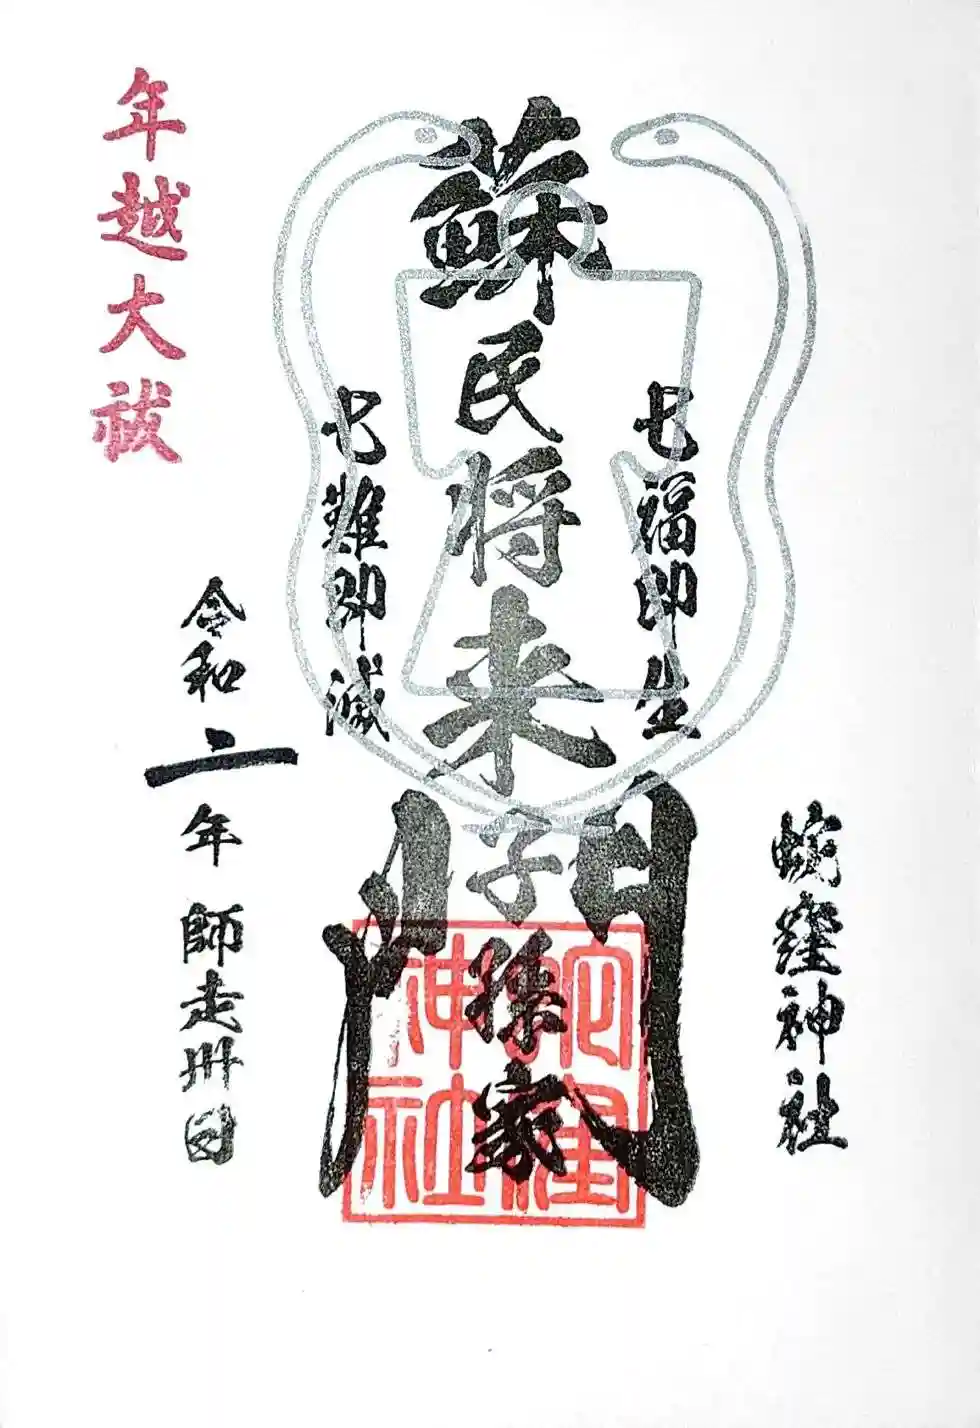 蛇窪神社
七福即生
蘇民将来子孫家門
七難即滅
令和二年師走卅日
年越大祓
蛇窪神社